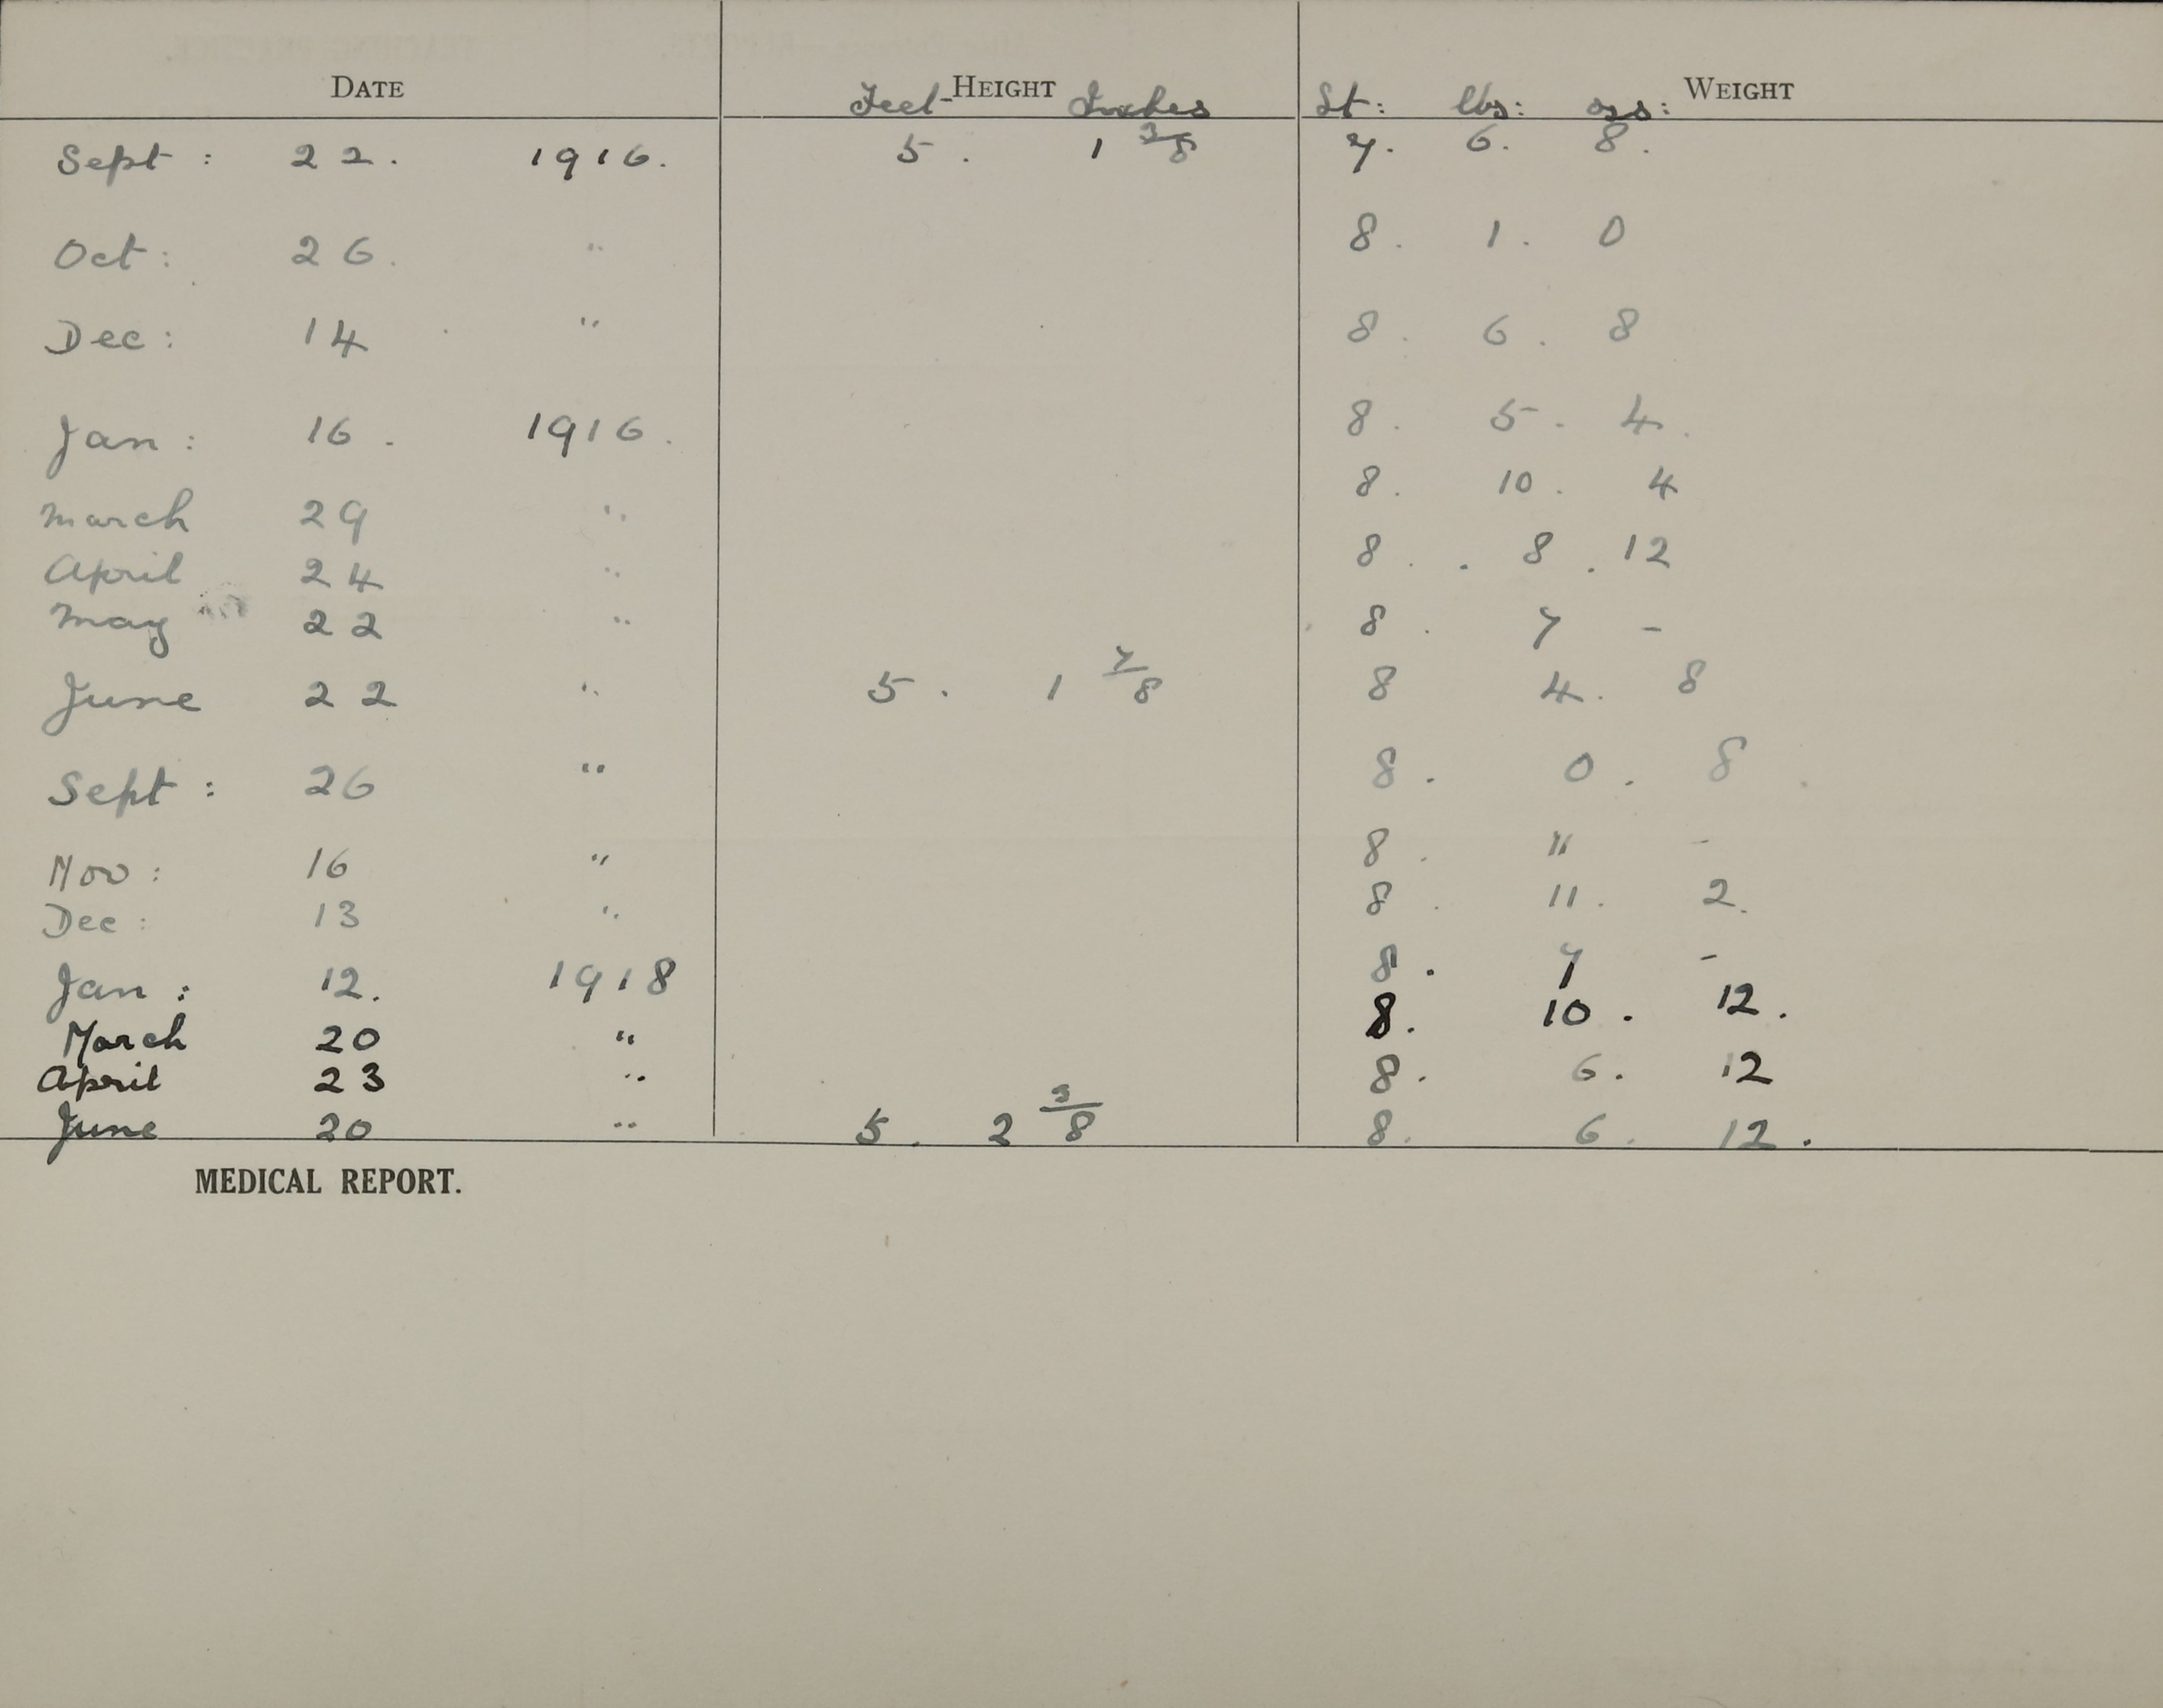 DATE HEIGHT WEIGHT
Feet Inches St: lbs: ozs:
Sept : 22. 1916. 5. 1 3/8 7. 6. 8.
Oct : 26. " 8. 1. 0
Dec : 14 " 8. 6. 8
Jan : 16. 1916. 8. 5. 4.
March 29 " 8. 10. 4
April 24 " 8. . 8 . 12
May 22 " 8. 7 -
June 22 " 5. 1 7/8 8 4. 8
Sept : 26 " 8. 0. 8.
Nov : 16 " 8. 11 -
Dec : 13 " 8. 11. 2.
Jan : 12. 1918 8. 7 -
March 20 " 8. 10. 12.
April 23 " 8. 6. 12
June 20 " 5. 2 3/8 8. 6. 12.
MEDICAL REPORT.